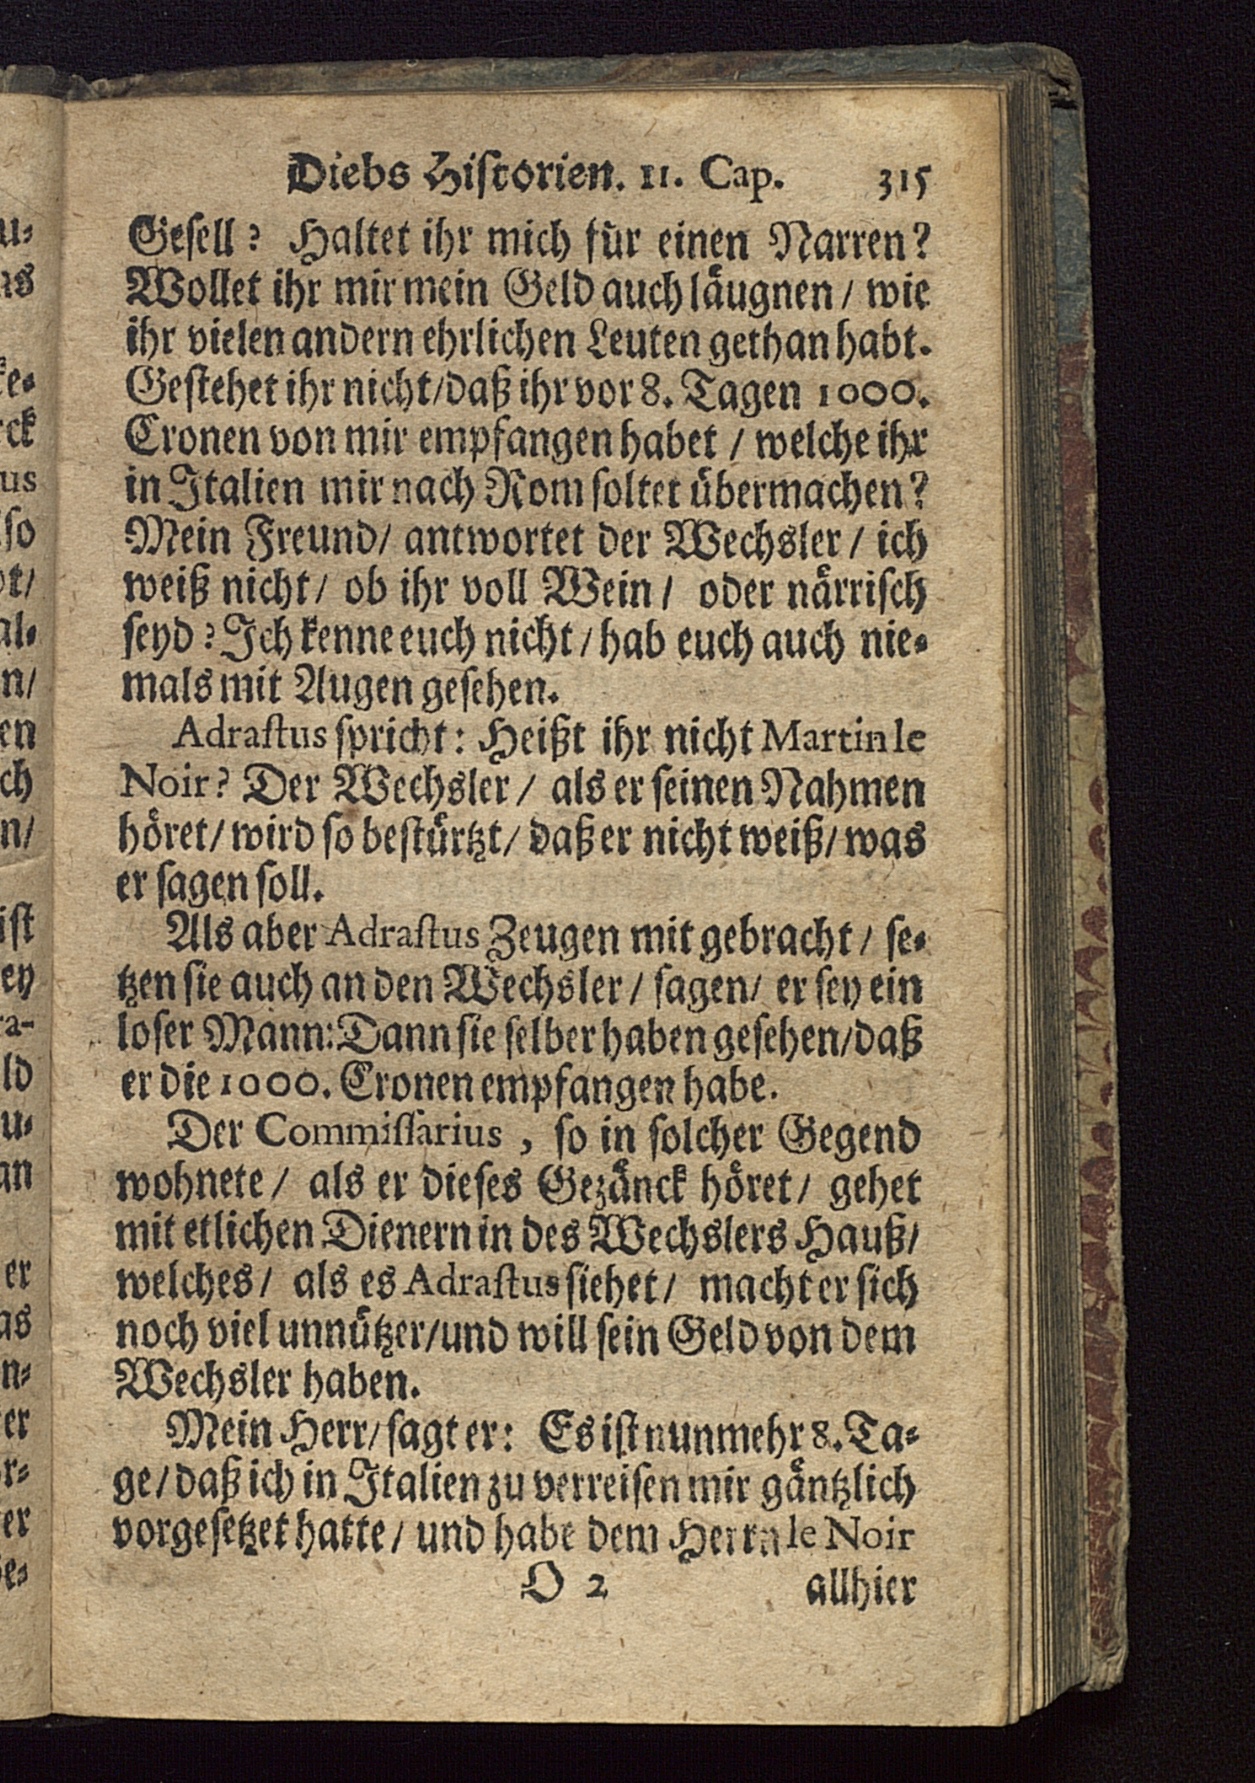 Diebs Historien. 11. Cap. 315
Gesell? Haltet ihr mich für einen Narren?
Wollet ihr mir mein Geld auch läugnen / wie
ihr vielen andern ehrlichen Leuten gethan habt.
Gestehet ihr nicht/daß ihr vor 8. Tagen 1000.
Cronen von mir empfangen habet / welche ihr
in Italien mir nach Rom soltet übermachen?
Mein Freund/ antwortet der Wechsler / ich
weiß nicht/ ob ihr voll Wein / oder närrisch
seyd? Ich kenne euch nicht / hab euch auch nie-
mals mit Augen gesehen.
Adrastus spricht: Heißt ihr nicht Martin le
Noir? Der Wechsler / als er seinen Nahmen
höret/ wird so bestürtzt/ daß er nicht weiß/ was
er sagen soll.
Als aber Adrastus Zeugen mit gebracht / se-
tzen sie auch an den Wechsler / sagen/ er sey ein
loser Mann: Dann sie selber haben gesehen/daß
er die 1000. Cronen empfangen habe.
Der Commissarius, so in solcher Gegend
wohnete / als er dieses Gezänck höret/ gehet
mit etlichen Dienern in des Wechslers Hauß/
welches / als es Adrastus siehet / macht er sich
noch viel unnützer/und will sein Geld von dem
Wechsler haben.
Mein Herr/ sagt er: Es ist nunmehr 8. Ta-
ge / daß ich in Italien zu verreisen mir gäntzlich
vorgesetzet hatte / und habe dem Herrn le Noir
O 2 allhier